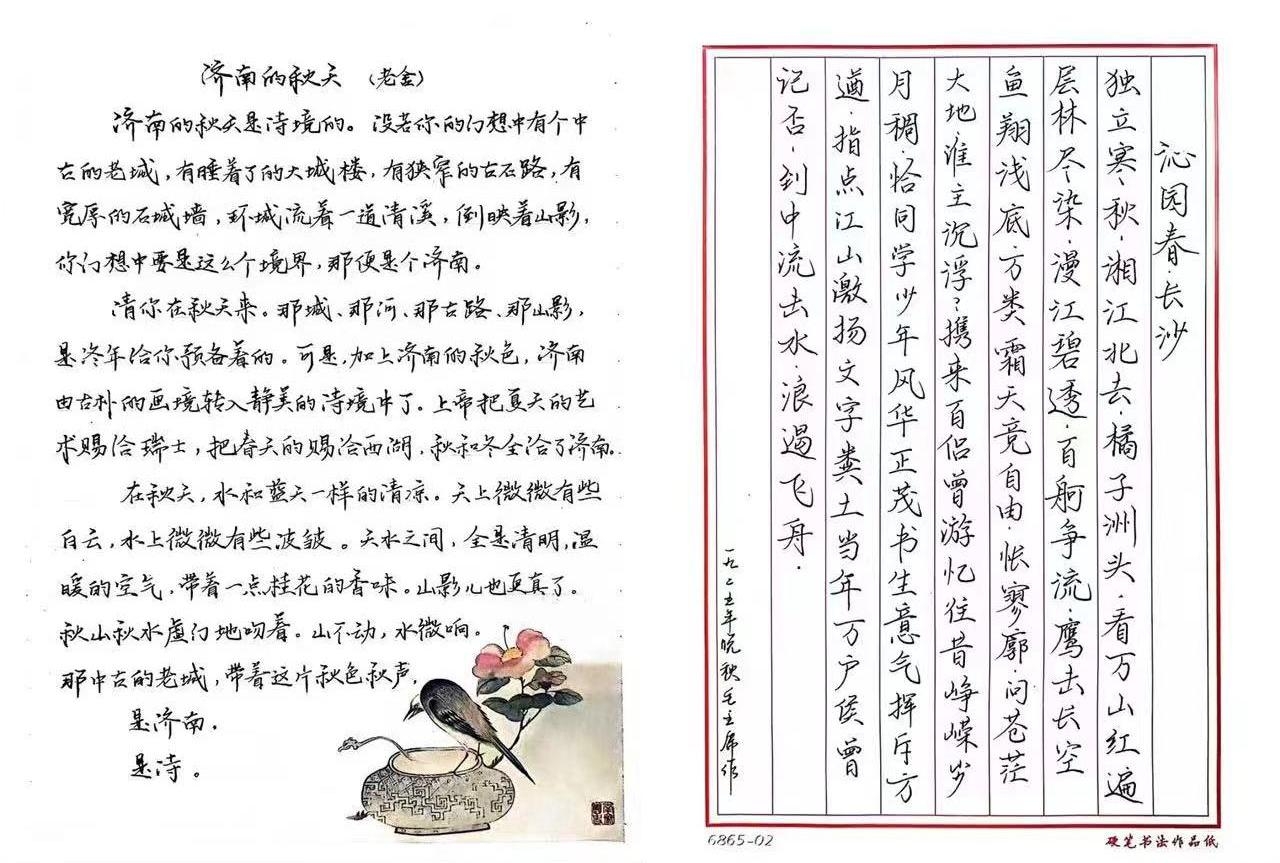 济南的秋天 (老舍)
济南的秋天是诗境的。设若你的幻想中有个中
古的老城，有睡着了的大城楼，有狭窄的古石路，有
宽厚的石城墙，环城流着一道清溪，倒映着山影，
你幻想中要是这么个境界，那便是个济南。
请你在秋天来。那城、那河、那古路、那山影，
是终年给你预备着的。可是，加上济南的秋色，济南
由古朴的画境转入静美的诗境中了。上帝把夏天的艺
术赐给瑞士，把春天的赐给西湖，秋和冬全给了济南。
在秋天，水和蓝天一样的清凉。天上微微有些
白云，水上微微有些波皱。天水之间，全是清明，温
暖的空气，带着一点桂花的香味。山影儿也更真了。
秋山秋水虚幻地吻着。山不动，水微响。
那中古的老城，带着这片秋色秋声，
是济南，
是诗。
沁园春·长沙
独立寒秋·湘江北去·橘子洲头·看万山红遍
层林尽染·漫江碧透·百舸争流·鹰击长空
鱼翔浅底万类霜天竞自由·怅寥廓·问苍茫
大地·谁主沉浮?携来百侣曾游忆往昔峥嵘岁
月稠·恰同学少年风华正茂书生意气挥斥方
遒·指点江山激扬文字粪土当年万户侯曾
记否·到中流击水·浪遏飞舟·
一九二五年晚秋毛主席作
6865-02
硬笔书法作品纸